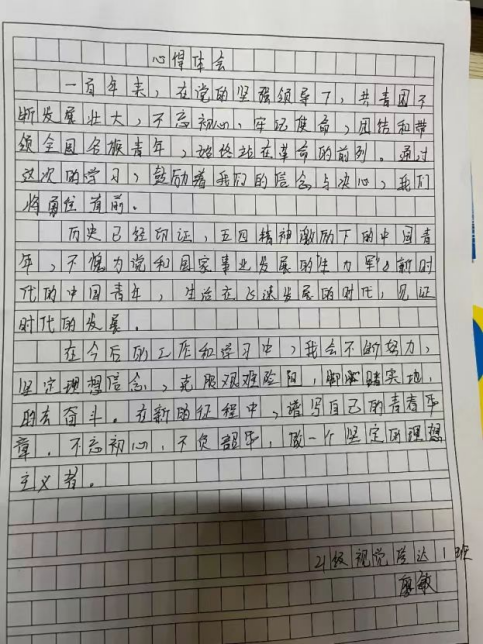 心得体会
一百年来，在党的坚强领导下，共青团不
断发展壮大，不忘初心，牢记使命，团结和带
领全国各族青年，始终站在革命的前列。通过
这次的学习，鼓励着我们的信念与决心，我们
将勇往直前。
历史已经印证，五四精神激励下的中国青
年，不愧为党和国家事业发展的生力军。新时
代的中国青年，生活在飞速发展的时代，见证
时代的发展。
在今后的工作和学习中，我会不断努力，
坚定理想信念，克服艰难险阻，脚踏实地，
的去奋斗。在新的征程中，谱写自己的青春华
章。不忘初心，不负韶华，做一个坚定的理想
主义者。
21级视觉传达1班
敏